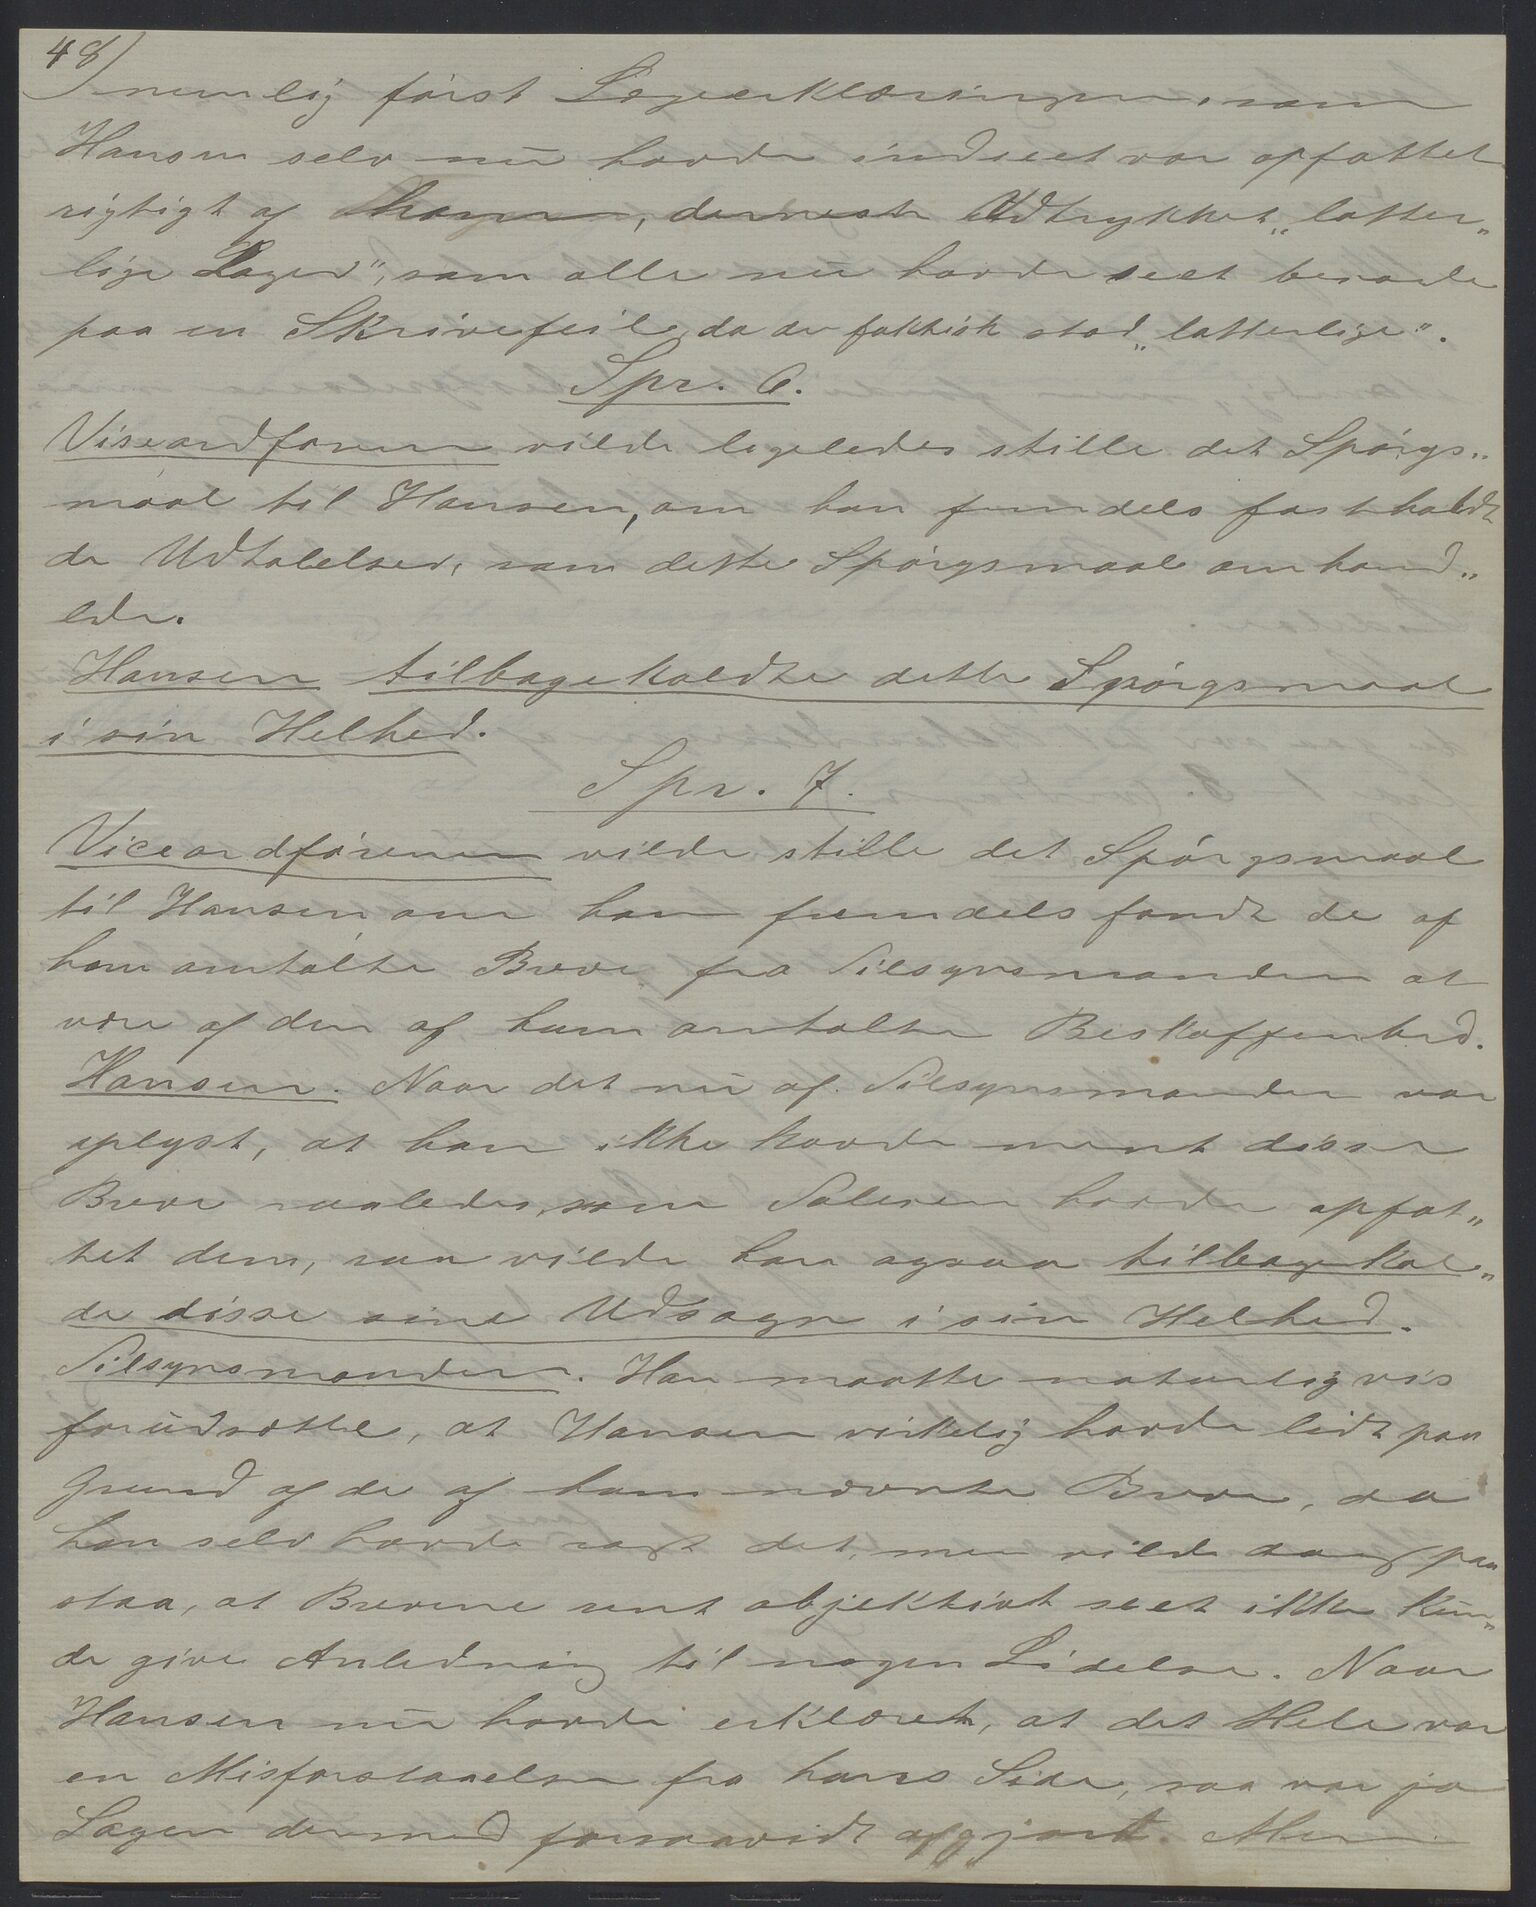 48)
nemlig först Lægeerklæringen, som
Hansen selv nu havde indseet var opfattet
rigtigt af Thams, dernæst Udtrykket „latter„
lige Læger", som alle nu havde seet beroede
paa en Skrivefeil, da der faktisk stod „latterlige".
Spr. 6.
Viseordføreren vilde ligeledes stille det Spörgs„
maal til Hansen, om han fremdeles fastholdt
de Udtalelser, som dette Spörgsmaal omhand„
lede.
Hansen tilbagekaldte dette Spörgsmaal
i sin Helhed.
Spr. 7.
Viceordföreren vilde stille det Spörgsmaal
til Hansen om han fremdels fandt de af
ham omtalte Breve fra Tilsynsmanden at
være af den af ham omtalte Beskaffenhed.
Hansen. Naar det nu af Tilsynsmanden var
oplyst, at han ikke havde ment disse
Breve saaledes, som Taleren havde opfat„
tet dem, saa vilde han ogsaa tilbagekal„
de disse sine Udsagn i sin Helhed.
Tilsynsmanden. Han maatte naturligvis
forudsætte, at Hansen virkelig havde lidt paa
Grund af de af ham nævnte Breve, da
han selv havde sagt det, men vilde dog paa
staa, at Brevene rent objektivt seet ikke kun„
de give Anledning til nogen Lidelse. Naar
Hansen nu havde erklæret, at det Hele var
en Misforstaaelse fra hans Side, saa var jo
Sagen dermed forsaavidt afgjort. Men